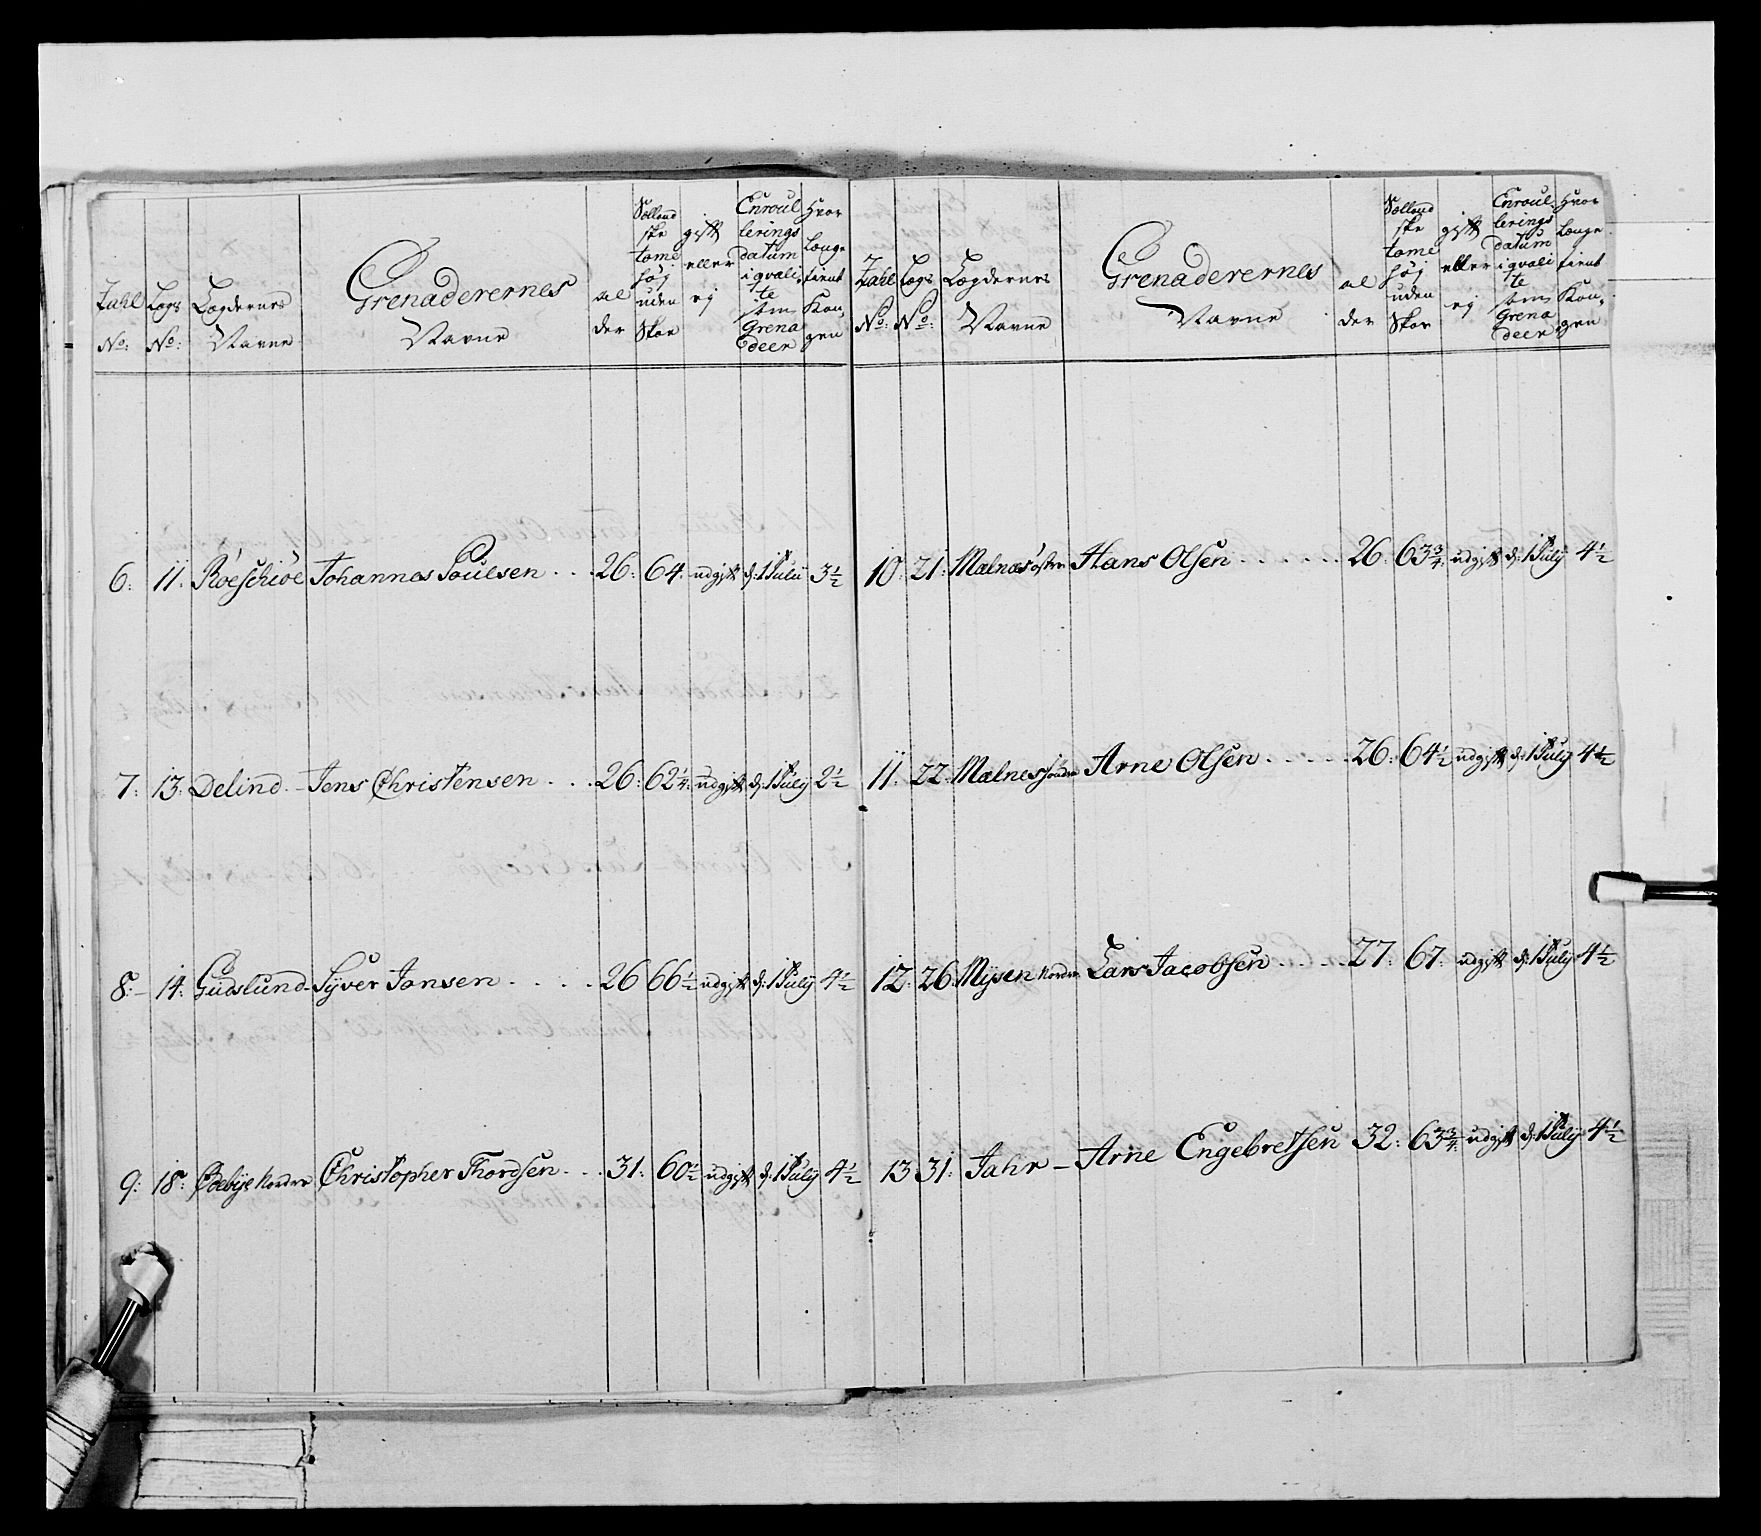 Tahl No: Legs No: Lægdernes Navne Grenaderernes Navne al der Sællend ske tome høj uden Skoe gift eller ej Enroul lerings datum i qvali te som Grena deer Hvor længe tient Kon, gen
6: 11. Röeschiöe Johannes Poulsen . . . 26: 64. udgift d: 1 July 3½
7: 13: Delind - Jens Christensen . . . 26: 62¼: udgift d: 1 July 2½
8:- 14: Gudslund Syver Jansen . . . . 26 66½ udgift d: 1 July 4½
9: 18: Nordre Christopher Thordsen . . . 31: 60½ udgift d: 1 July 4½
Tahl No: Legs No: Lægdernes Navne Grenaderernes Navne al der Sællend ske tome høj uden Skoe gift eller ej Enroul lerings datum i qvali te som Grena deer Hvor længe tient Kon, gen
10: 21: Mælnæs östre Hans Olsen . . . . . . 26: 63¾ udgift d: 1 July 4½
11: 22: Mælnes söndre Arne Olsen . . . . . 26: 64½ udgift d: 1 July 4½
12: 26: Mysen Nordre Lars Jacobsen . . . . . 27: 67: udgift d: 1 July 4½
13 31: Jahr - Arne Engebretsen 32: 63¾ udgift d: 1 July 4½